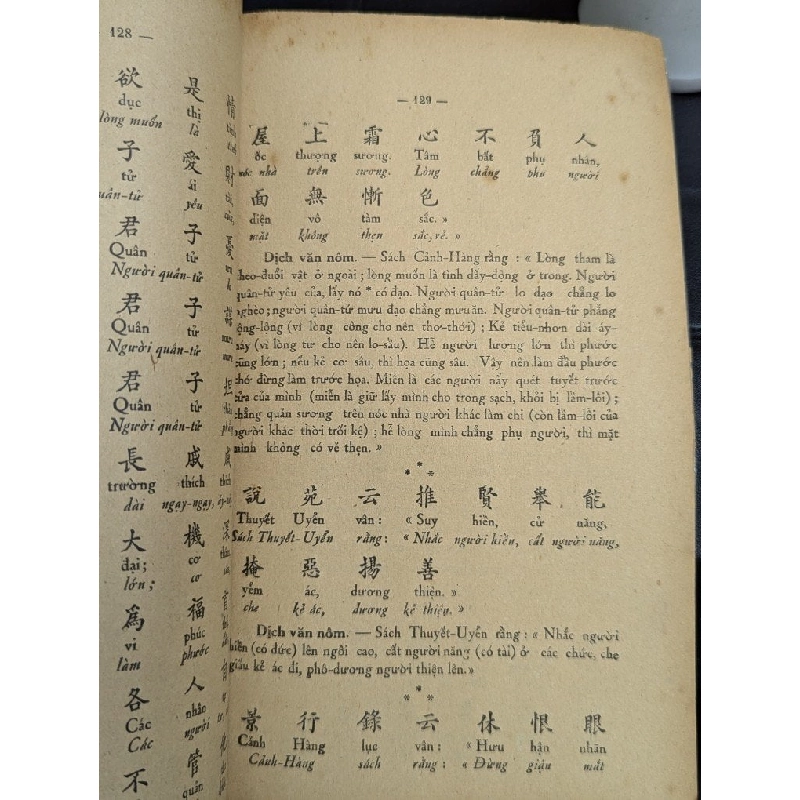 128 —
欲 是
dục thị
lòng muốn là
子 愛
tử ái
quân-tử yêu
君 子
Quân tử
Người quân-tử
君 子
Quân tử
Người quân-tử
君 子
Quân tử
Người quân-tử
長 戚
trường thích
dài ngay-ngay,
大 機
đại; cơ
lớn; cơ
爲 福
vi phúc
làm phước
各 人
Các nhân
Các người
不 管
quản
— 129 —
屋 上 霜 心 不 負 人
ốc thượng sương. Tâm bất phụ nhân,
nóc nhà trên sương. Lòng chẳng phụ người
面 無 慚 色
diện vô tàm sắc. »
mặt không thẹn sắc, rẻ. »
Dịch văn nôm. — Sách Cảnh-Hàng rằng : « Lòng tham là
theo-đuổi vật ở ngoài ; lòng muốn là tình dấy-động ở trong. Người
quân-tử yêu của, lấy nó * có đạo. Người quân-tử lo đạo chẳng lo
nghèo; người quân-tử mưu đạo chẳng mưu ăn. Người quân-tử phẳng
rộng-lộng (vì lòng công cho nên thơ-thới) ; Kẻ tiểu-nhơn dài áy-
náy (vì lòng tư cho nên lo-sầu). Hễ người lượng lớn thì phước
cũng lớn ; nếu kẻ cơ sâu, thì họa cũng sâu. Vậy nên làm đầu phước
chớ đừng làm trước họa. Miễn là các người nấy quét tuyết trước
cửa của mình (miễn là giữ lấy mình cho trong sạch, khỏi bị lầm-lỗi) ;
chẳng quản sương trên nóc nhà người khác làm chi (còn lầm-lỗi của
người khác thời trối kệ) ; hễ lòng mình chẳng phụ người, thì mặt
mình không có vẻ thẹn. »
* * *
說 苑 云 推 賢 舉 能
Thuyết Uyển vân : « Suy hiền, cử năng,
Sách Thuyết-Uyển rằng : « Nhắc người hiền, cất người năng,
掩 惡 揚 善
yểm ác, dương thiện. »
che kẻ ác, dương kẻ thiện. »
Dịch văn nôm. — Sách Thuyết-Uyển rằng : « Nhắc người
hiền (có đức) lên ngôi cao, cất người năng (có tài) ở các chức, che
giấu kẻ ác đi, phô-dương người thiện lên. »
* * *
景 行 錄 云 休 恨 眼
Cảnh Hàng lục vân : « Hưu hận nhãn
Cảnh-Hàng sách rằng : « Đừng giận mắt